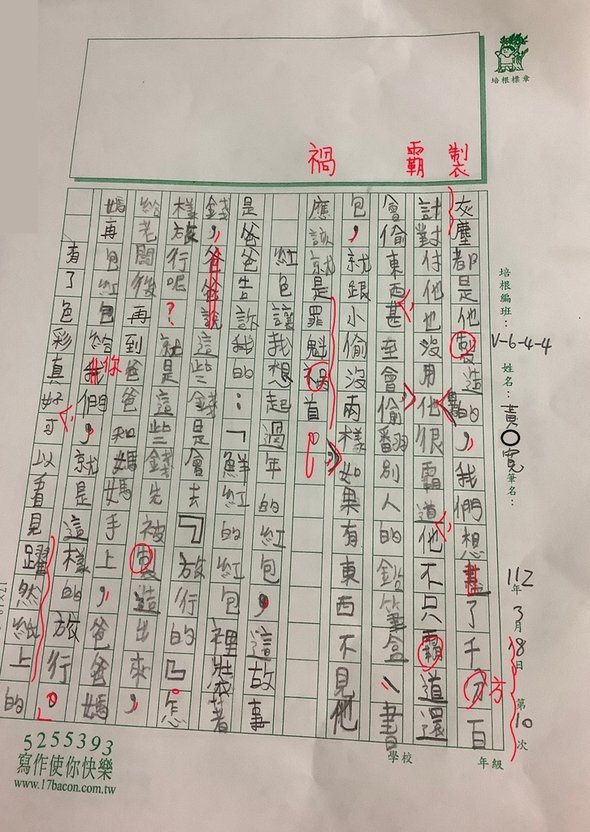 培根標章
製
霸
禍
培根編班：V-6-4-4
姓名：黃〇寬
筆名：
112年3月8日第10次
年級
學校
灰塵都是他製造的，我們想盡了千方百
計對付他也沒用他很霸道他不只霸道還
會偷東西甚至會偷翻別人的鉛筆盒、書
包，就跟小偷沒兩樣如果有東西不見他
應該就是罪魁禍首。
紅包讓我想起過年的紅包，這故事
是爸爸告訴我的：「鮮紅的紅包裡裝著
錢，爸爸說這些錢是會去『放行的』。怎
樣放行呢？就是這些錢先被製造出來，
給老闆後再到爸爸和媽媽手上，爸爸媽
媽再包紅包給你們，就是這樣的放行。」
有了色彩真好可以看見躍然紙上的
5255393
寫作使你快樂
www.17bacon.com.tw